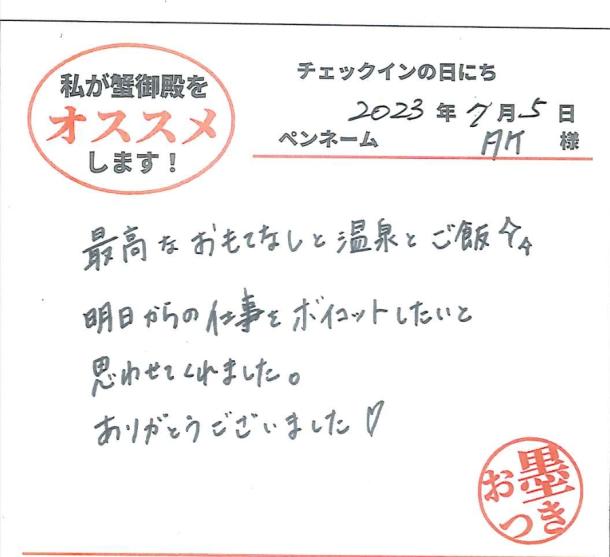 私が蟹御殿を
オススメ
します！
チェックインの日にち
2023年7月5日
ペンネーム 様
最高なおもてなしと温泉とご飯
明日からの仕事をボイコットしたいと
思わせてくれました。
ありがとうございました♡
お墨
つき